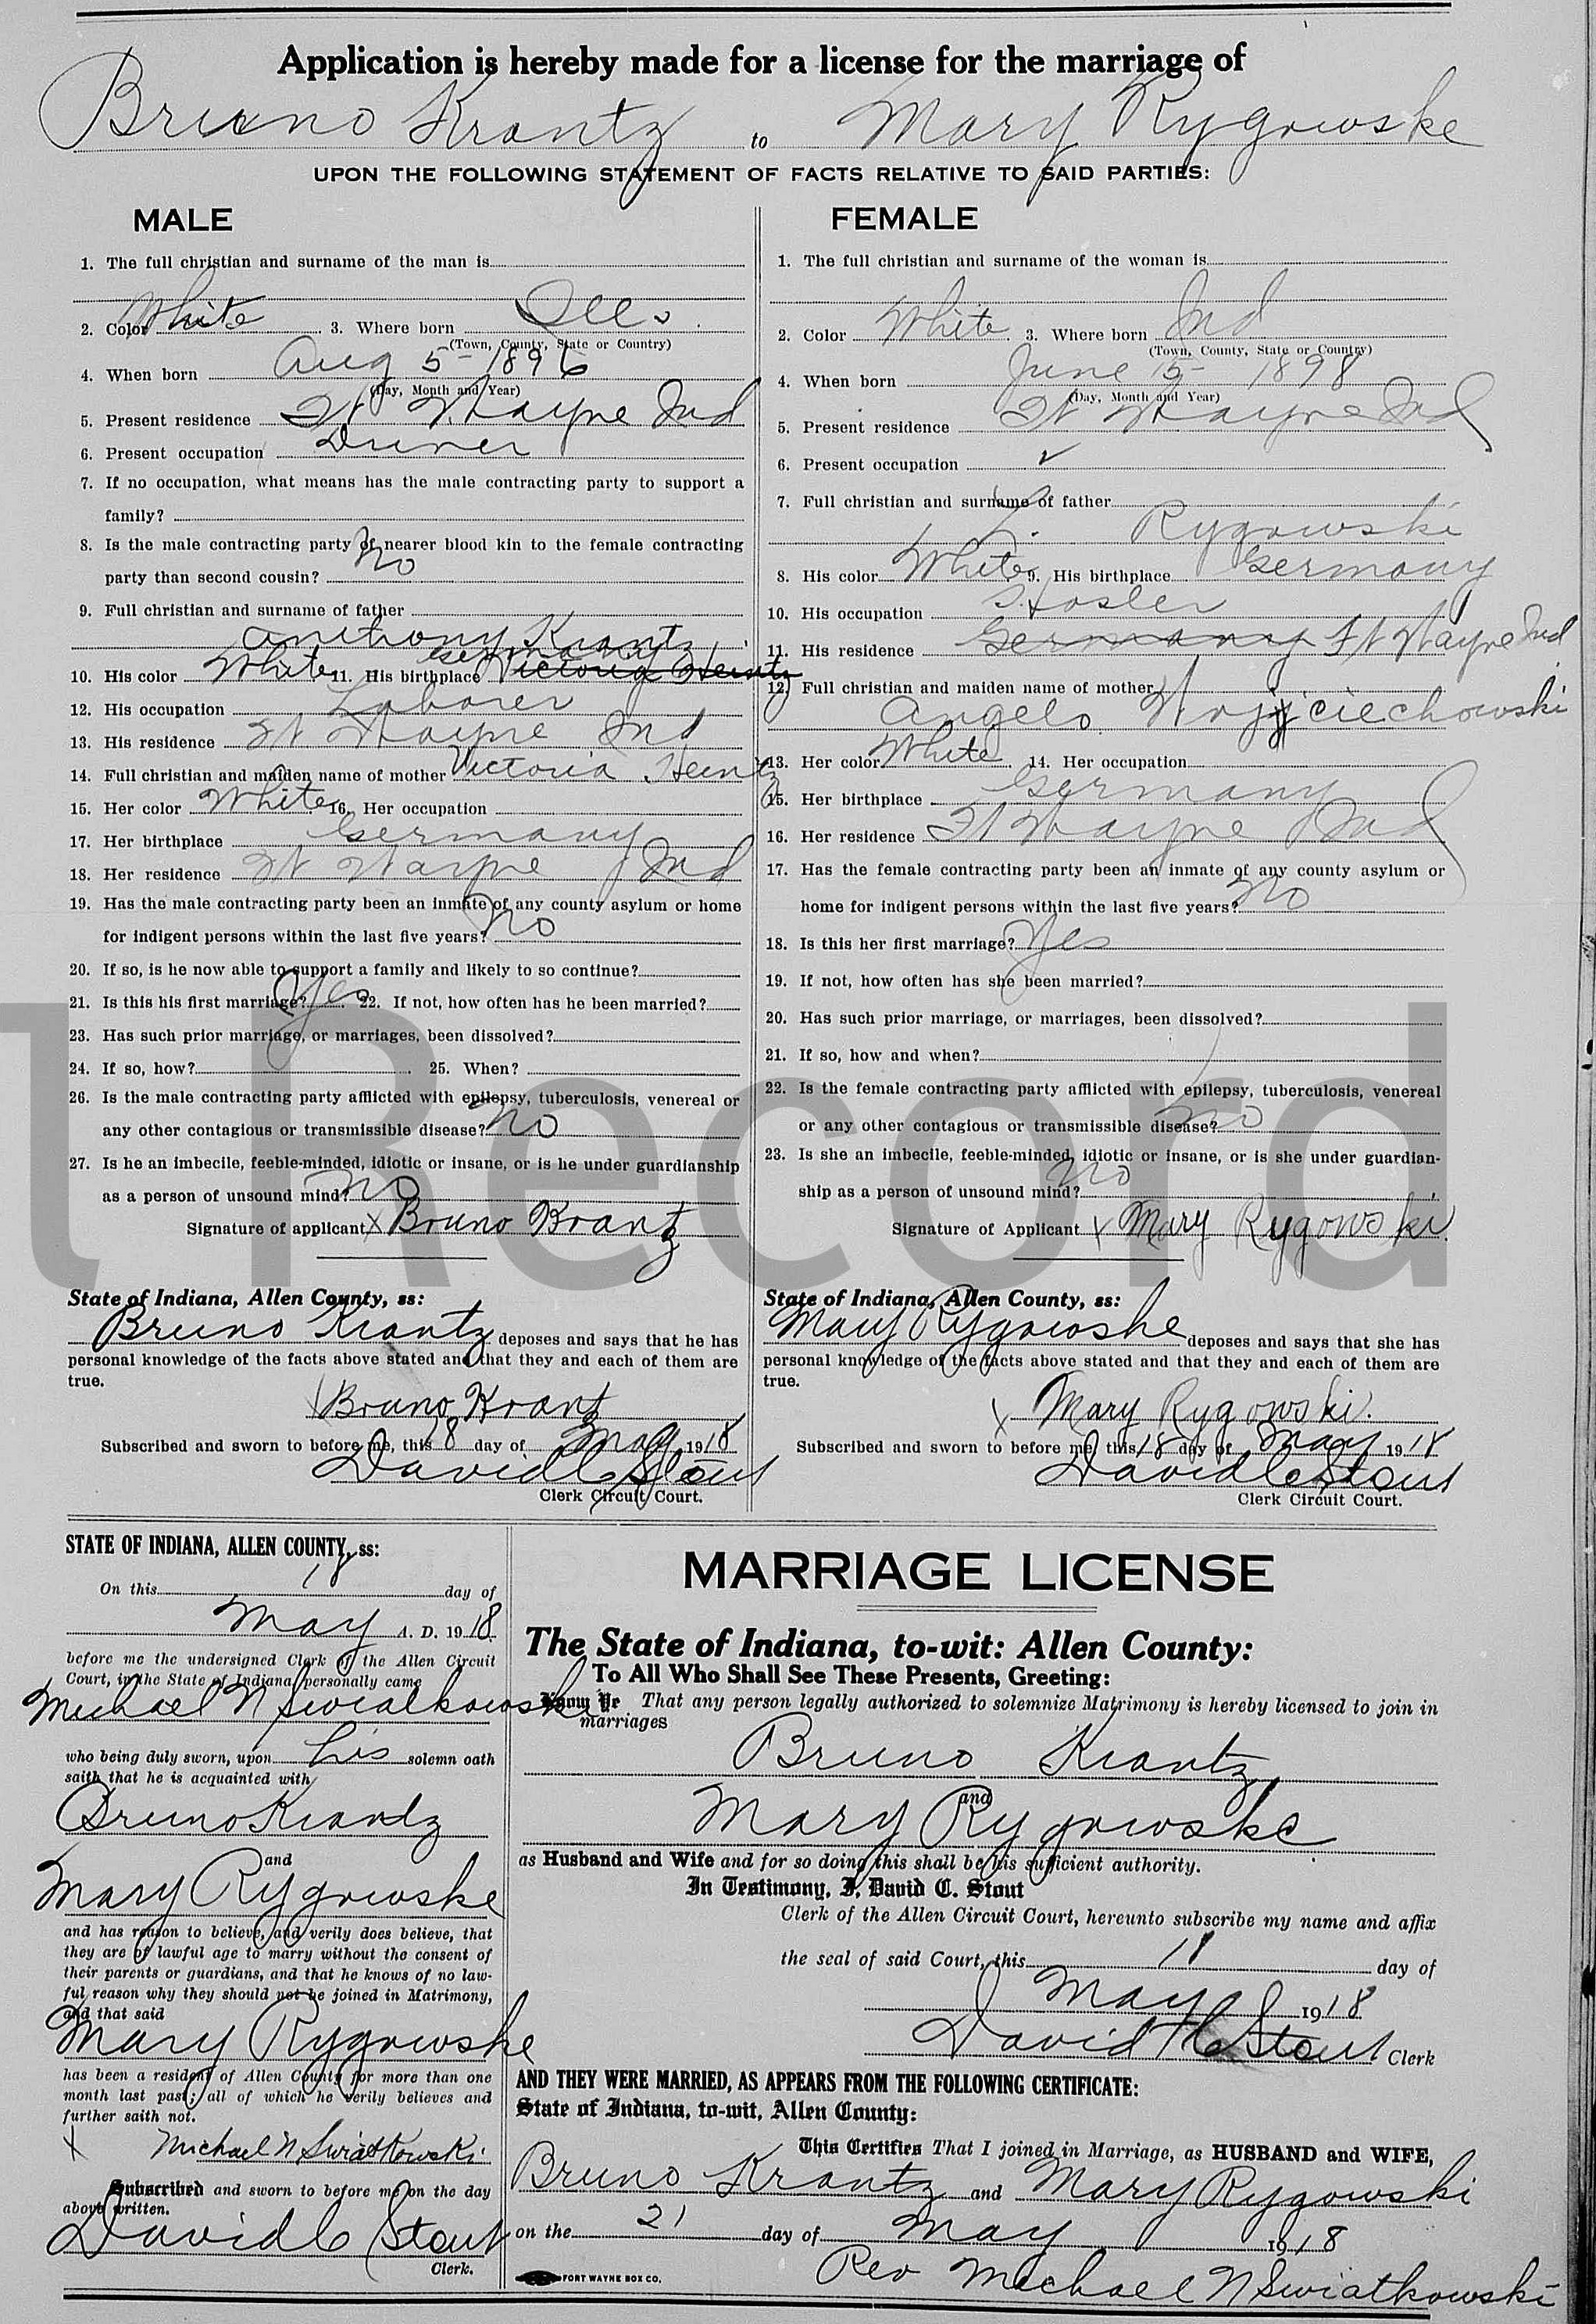 Application is hereby made for a license for the marriage of
Bruno Krantz to Mary Rygowske
UPON THE FOLLOWING STATEMENT OF FACTS RELATIVE TO SAID PARTIES:
MALE
1. The full christian and surname of the man is
2. Color White 3. Where born Ills
(Town, County, State or Country)
4. When born Aug 5 - 1896
(Day, Month and Year)
5. Present residence Ft Wayne Ind
6. Present occupation Driver
7. If no occupation, what means has the male contracting party to support a
family?
8. Is the male contracting party of nearer blood kin to the female contracting
party than second cousin? No
9. Full christian and surname of father
Anthony Krantz
Germany
10. His color White 11. His birthplace Victoria Heintz
12. His occupation Laborer
13. His residence Ft Wayne Ind
14. Full christian and maiden name of mother Victoria Heintz
15. Her color White 16. Her occupation
17. Her birthplace Germany
18. Her residence Ft Wayne Ind
19. Has the male contracting party been an inmate of any county asylum or home
for indigent persons within the last five years? No
20. If so, is he now able to support a family and likely to so continue?
21. Is this his first marriage? Yes 22. If not, how often has he been married?
23. Has such prior marriage, or marriages, been dissolved?
24. If so, how? 25. When?
26. Is the male contracting party afflicted with epilepsy, tuberculosis, venereal or
any other contagious or transmissible disease? No
27. Is he an imbecile, feeble-minded, idiotic or insane, or is he under guardianship
as a person of unsound mind? No
Signature of applicant x Bruno Krantz
State of Indiana, Allen County, ss:
Bruno Krantz deposes and says that he has
personal knowledge of the facts above stated and that they and each of them are
true.
x Bruno Krantz
Subscribed and sworn to before me, this 18 day of May 1918
David C Stout
Clerk Circuit Court.
FEMALE
1. The full christian and surname of the woman is
2. Color White 3. Where born Ind
(Town, County, State or Country)
4. When born June 15 1898
(Day, Month and Year)
5. Present residence Ft Wayne Ind
6. Present occupation ✓
7. Full christian and surname of father
Rygowski
8. His color White 9. His birthplace Germany
10. His occupation
11. His residence Germany Ft Wayne Ind
12. Full christian and maiden name of mother
Angelo Wojciechowski
13. Her color White 14. Her occupation
15. Her birthplace Germany
16. Her residence Ft Wayne Ind
17. Has the female contracting party been an inmate of any county asylum or
home for indigent persons within the last five years? No
18. Is this her first marriage? Yes
19. If not, how often has she been married?
20. Has such prior marriage, or marriages, been dissolved?
21. If so, how and when?
22. Is the female contracting party afflicted with epilepsy, tuberculosis, venereal
or any other contagious or transmissible disease? No
23. Is she an imbecile, feeble-minded, idiotic or insane, or is she under guardian-
ship as a person of unsound mind? No
Signature of Applicant x Mary Rygowski.
State of Indiana, Allen County, ss:
Mary Rygowske deposes and says that she has
personal knowledge of the facts above stated and that they and each of them are
true.
x Mary Rygowski.
Subscribed and sworn to before me, this 18 day of May 1918
David C Stout
Clerk Circuit Court.
l Record
STATE OF INDIANA, ALLEN COUNTY, ss:
On this 18 day of
May A. D. 1918
before me the undersigned Clerk of the Allen Circuit
Court, in the State of Indiana, personally came
Michael N Swialkowski
who being duly sworn, upon his solemn oath
saith that he is acquainted with
Bruno Krantz
and
Mary Rygowske
and has reason to believe, and verily does believe, that
they are of lawful age to marry without the consent of
their parents or guardians, and that he knows of no law-
ful reason why they should not be joined in Matrimony,
and that said
Mary Rygowske
has been a resident of Allen County for more than one
month last past; all of which he verily believes and
further saith not.
x Michael N Swiatkowski
Subscribed and sworn to before me on the day
above written.
David C Stout
Clerk.
MARRIAGE LICENSE
The State of Indiana, to-wit: Allen County:
To All Who Shall See These Presents, Greeting:
Know Ye That any person legally authorized to solemnize Matrimony is hereby licensed to join in
marriages
Bruno Krantz
and
Mary Rygowske
as Husband and Wife and for so doing this shall be his sufficient authority.
In Testimony, I, David C. Stout
Clerk of the Allen Circuit Court, hereunto subscribe my name and affix
the seal of said Court, this 18 day of
May 1918
David C Stout Clerk
AND THEY WERE MARRIED, AS APPEARS FROM THE FOLLOWING CERTIFICATE:
State of Indiana, to-wit, Allen County:
This Certifies That I joined in Marriage, as HUSBAND and WIFE,
Bruno Krantz and Mary Rygowski
on the 21 day of May 1918
Rev Michael N Swiatkowski
FORT WAYNE BOX CO.